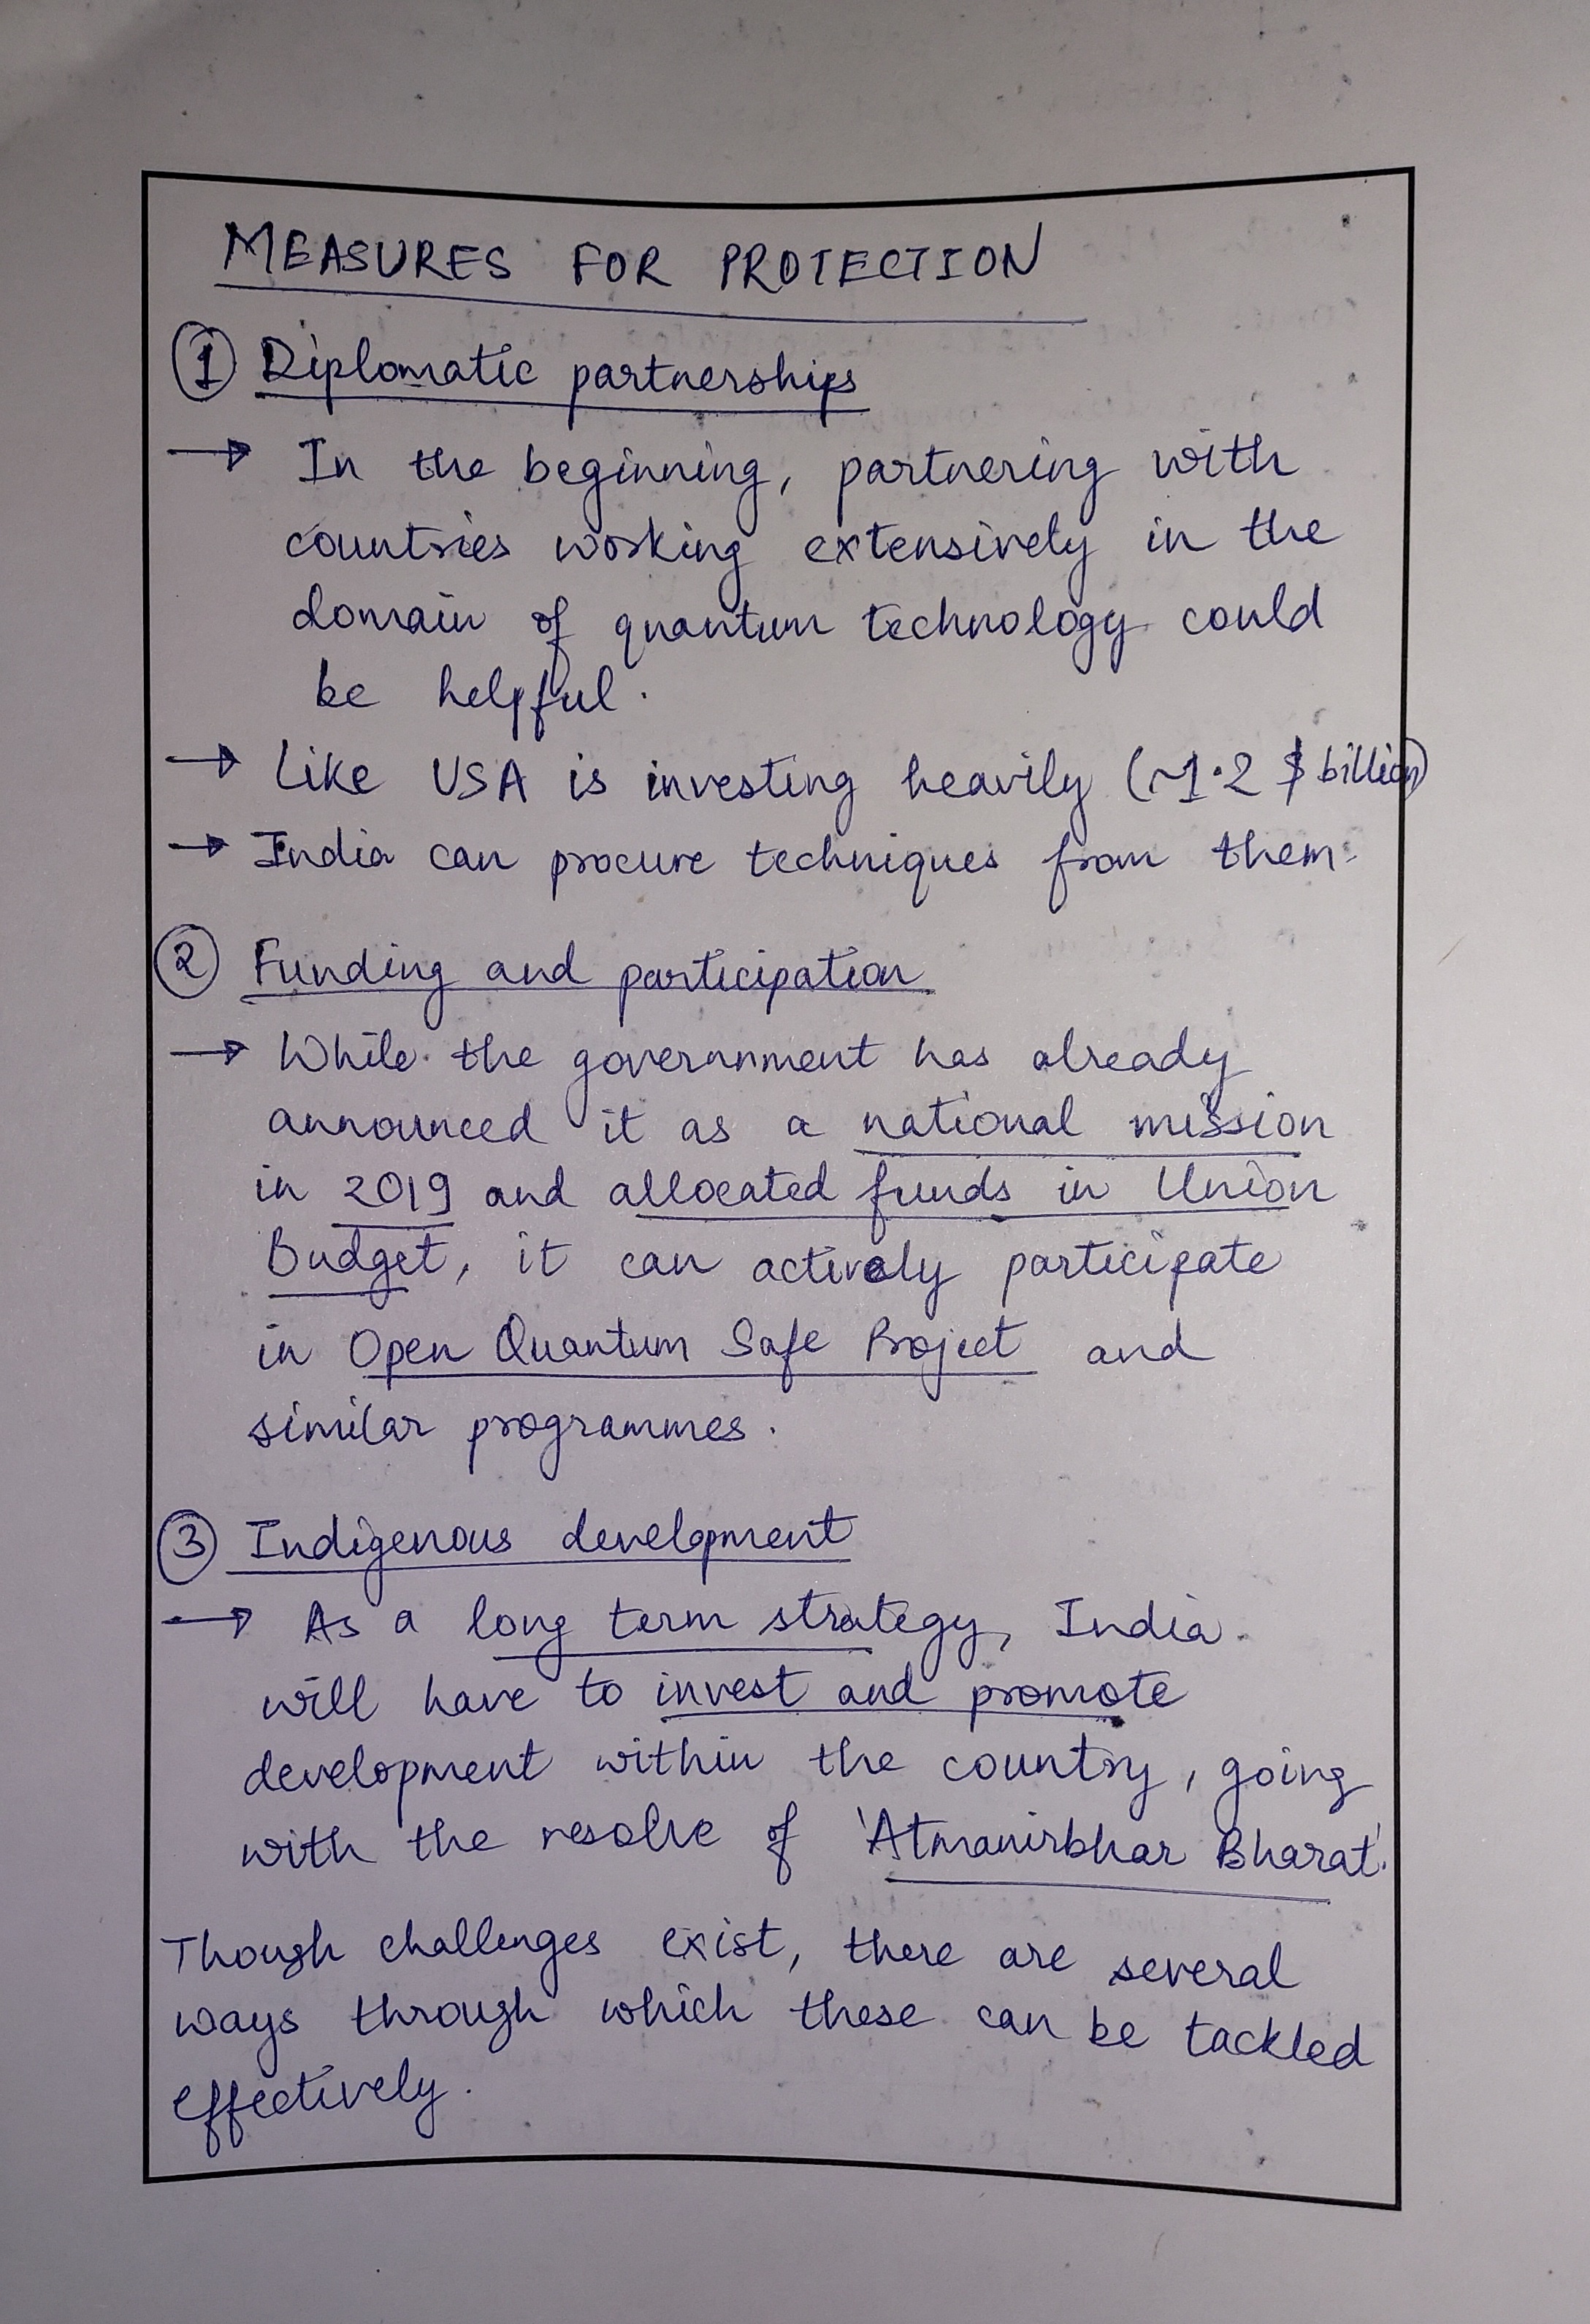 MEASURES FOR PROTECTION
① Diplomatic partnerships
→ In the beginning, partnering with
countries working extensively in the
domain of quantum technology could
be helpful.
→ Like USA is investing heavily (~1.2 $ billion)
→ India can procure techniques from them.
② Funding and participation
→ While the government has already
announced it as a national mission
in 2019 and allocated funds in Union
Budget, it can actively participate
in Open Quantum Safe Project and
similar programmes.
③ Indigenous development
→ As a long term strategy, India
will have to invest and promote
development within the country, going
with the resolve of 'Atmanirbhar Bharat'.
Though challenges exist, there are several
ways through which these can be tackled
effectively.